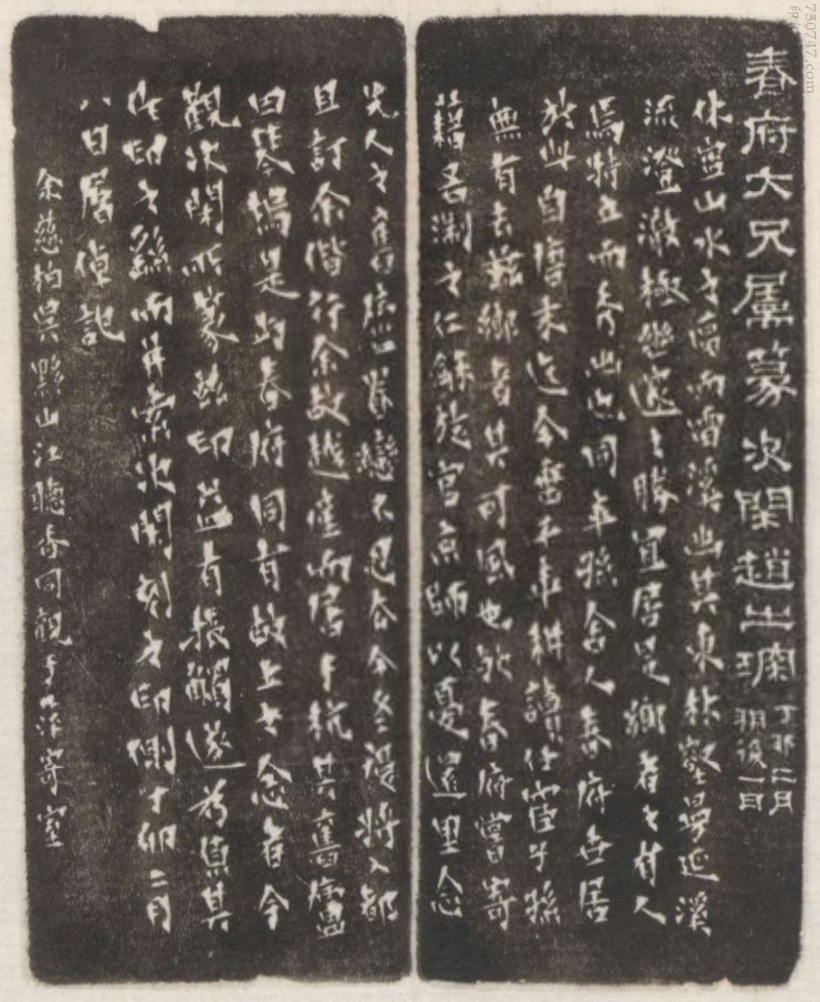 春府大兄屬篆次閑趙之琛
丁卯二月
朔後一日
休寧山水之高而溪幽其東延溪
流澄澈極幽邃之勝宜居是鄉者之材人
為特立而秀出也同年孫舍人春府世居
於此自唐末迄今歷千年耕讀仕宦子孫
無有去茲鄉者其可風也然春府嘗寄
籍吾浙之仁龢旋官京師以憂還里念
先人之舊廬眷戀不已今冬將入都
且訂余偕行余故越產而居于杭其舊廬
是均春府同有故土之念者今
觀次閑所篆茲印益有棖觸遂為其
作印之繇而并索次閑刻之印側丁卯二月
八日屠倬記
余慈柏吳黟山江聽香同觀于寄室